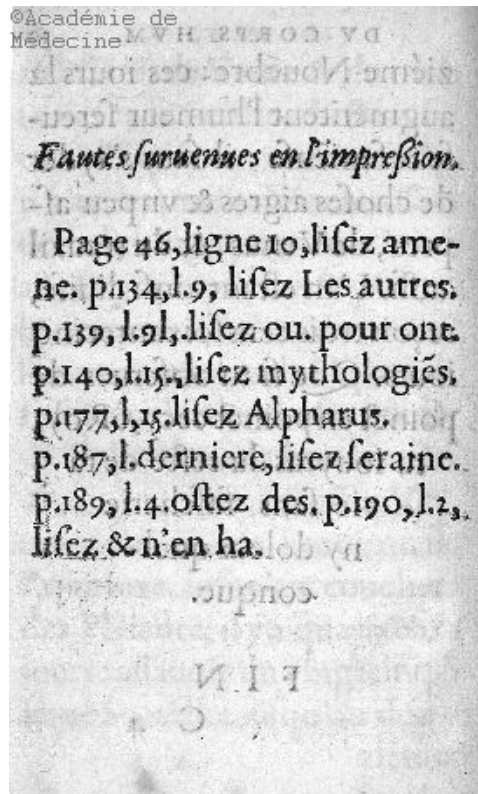 ©Académie de
Médecine
Fautes ſuruenues en l'impreſsion.
Page 46, ligne 10, liſéz ame-
ne. p.134, l.9, liſez Les autres.
p.139, l.9l,.liſez ou. pour ont.
p.140, l.15., liſez mythologiẽs.
p.177, l,15.liſez Alpharus.
p.187, l.derniere, liſez ſeraine.
p.189, l.4.oſtez des. p.190, l.2,
liſez & n'en ha.